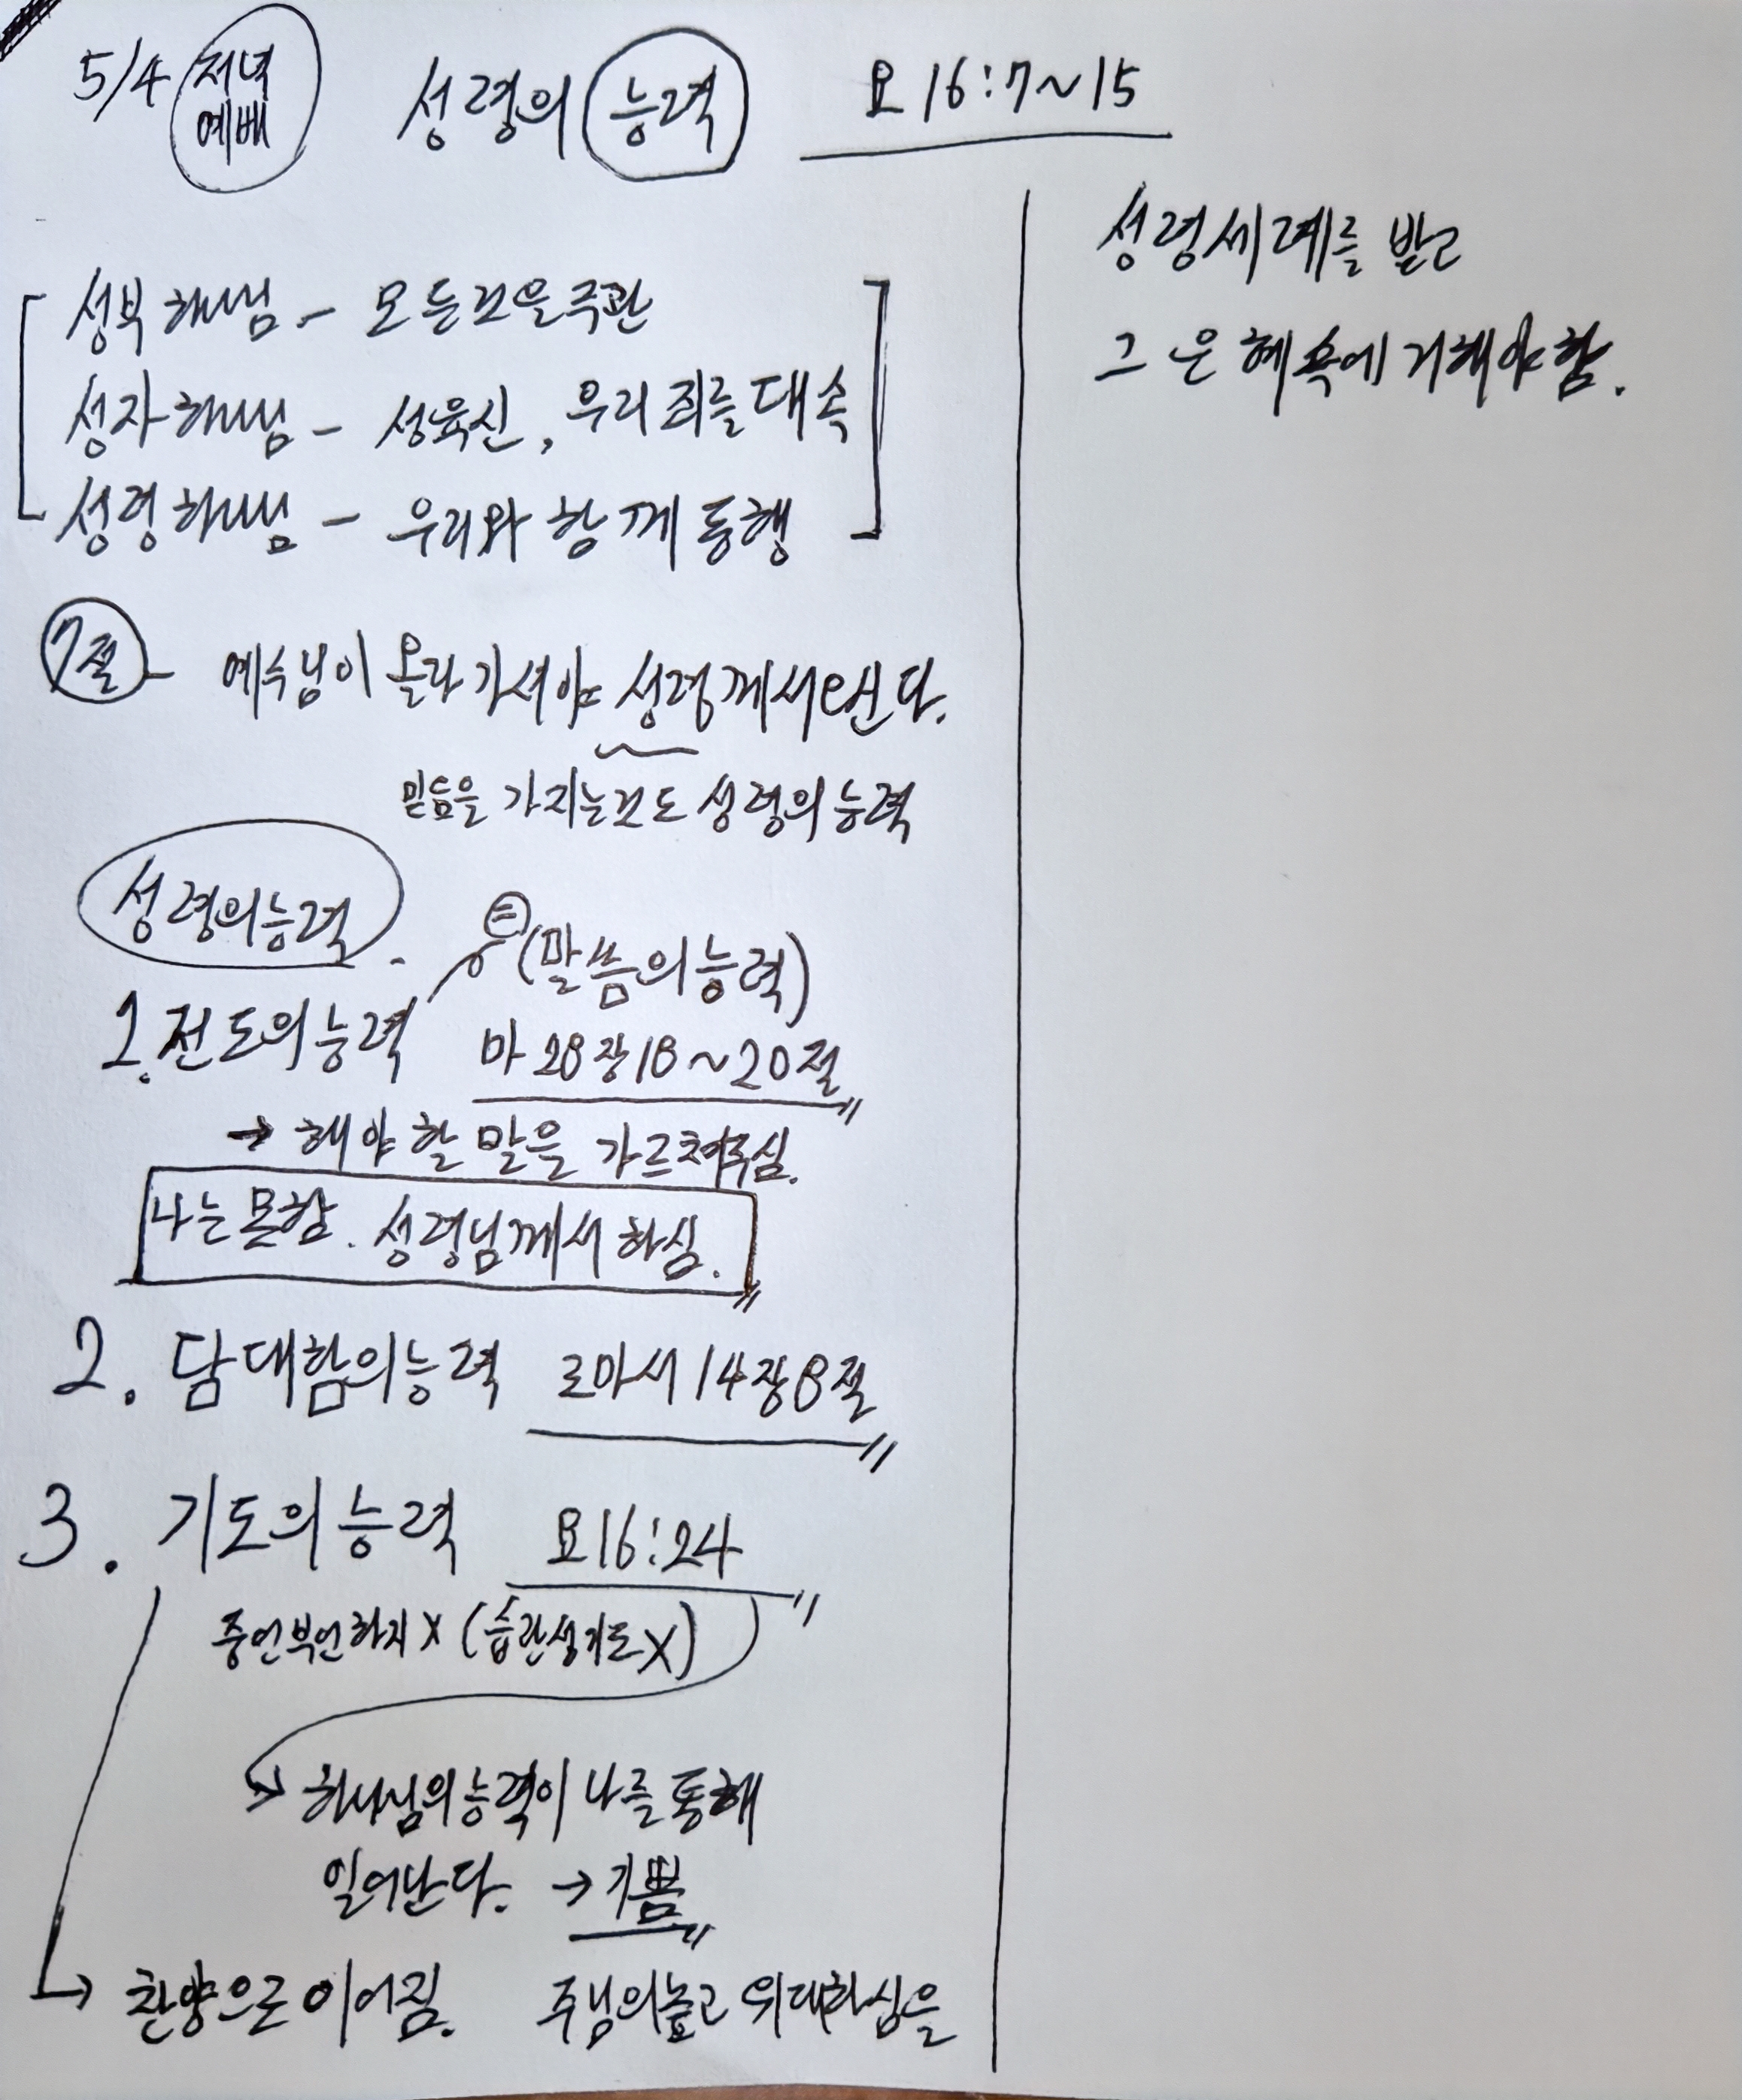 5/4 저녁 예배 성령의 능력 요 16:7~15
성부 하나님 - 모든것을 주관
성자 하나님 - 성육신, 우리 죄를 대속
성령 하나님 - 우리와 함께 동행
7절 - 예수님이 올라가셔야 성령께서 오신다.
믿음을 가지는것도 성령의 능력
성령의능력.
= (말씀의능력)
1. 전도의능력 마 28장 18~20절
→ 해야 할 말을 가르쳐주심.
나는 못함. 성령님께서 하심.
2. 담대함의능력 로마서 14장 8절
3. 기도의 능력 요16:24
중언부언하지 X (습관성기도 X)
→ 하나님의 능력이 나를 통해
일어난다. → 기쁨
→ 찬양으로 이어짐. 주님의높고 위대하심을
성령세례를 받고
그 은혜 속에 거해야 함.